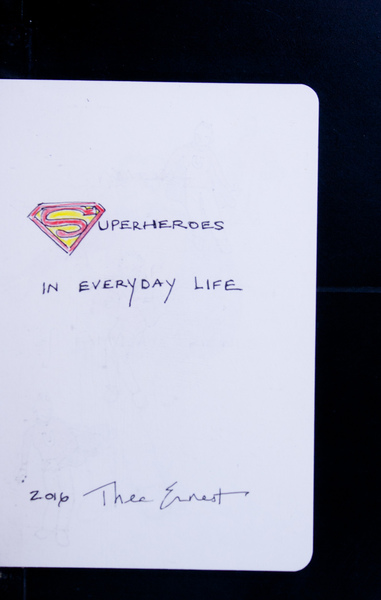 SUPERHEROES
IN EVERYDAY LIFE
2016 Thee Ernest